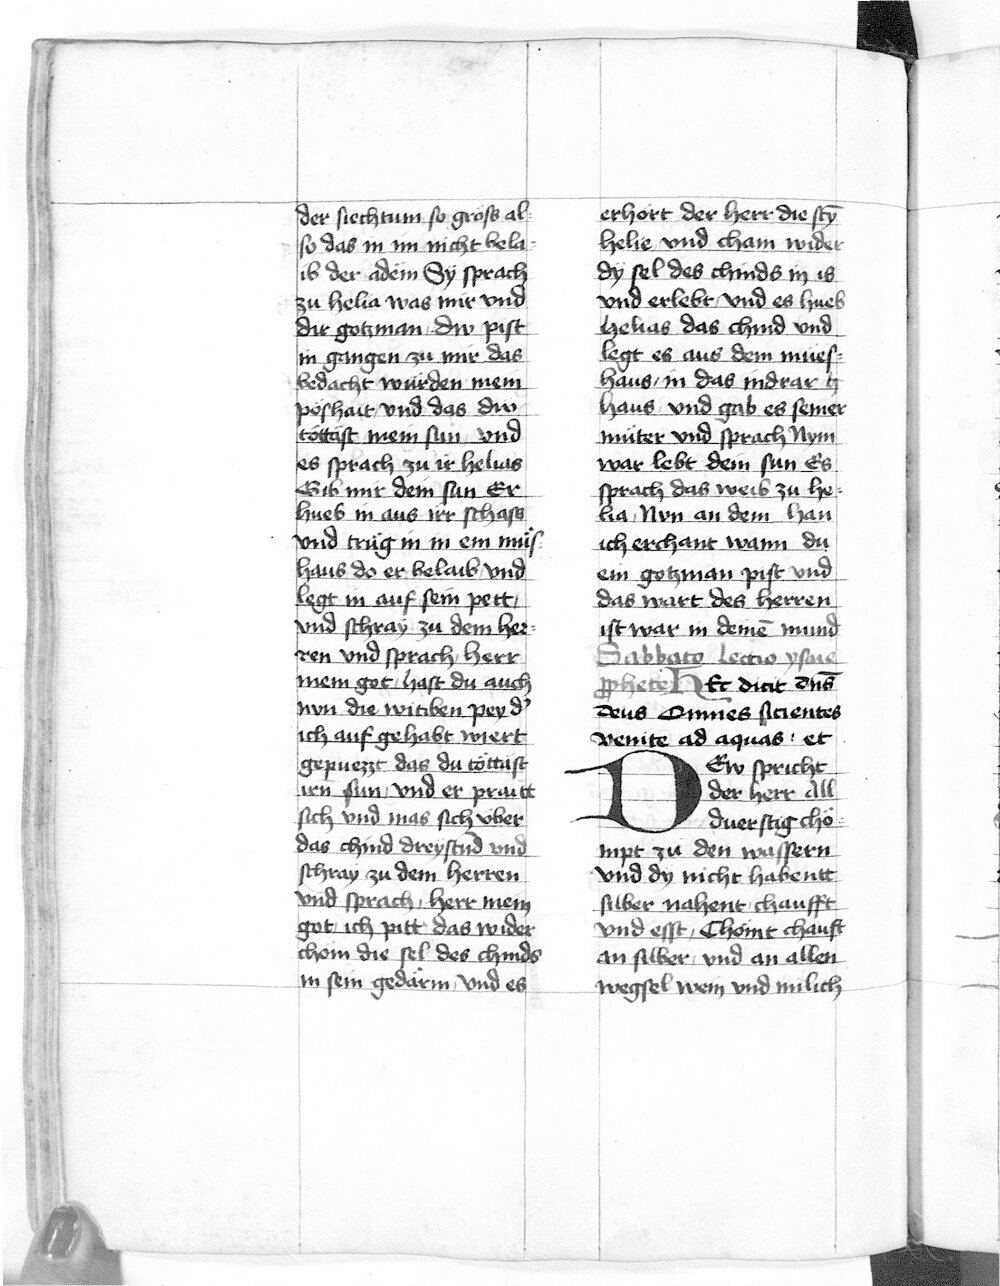 der siechtum so gröss al-
so das in im nicht bela-
ib der adem Sy sprach
zu helia was mir vnd
dir gotzman dw pist
in gangen zu mir das
bedacht würden mein
póshait vnd das dw
töttäst mein sun vnd
es sprach zu ir helias
Gib mir dein sun Er
hueb in aus irr schass
vnd trüg in in ein müs-
haus do er belaib vnd
legt in auf sein pett
vnd schray zu dem her-
ren vnd sprach herr
mein got hast du auch
nvn die witiben pey d'
ich auf gehabt wiert
gepuezzt das du töttäst
irn sun vnd er praitt
sich vnd mas sich vber
das chind dreystund vnd
schray zu dem herren
vnd sprach herr mein
got ich pitt das wider
chöm die sel des chinds
in sein gedärm vnd es
erhört der herr die stỹ
helie vnd cham wider
dy sel des chinds in is
vnd erlebt vnd es hueb
helias das chind vnd
legt es aus dem mues-
haus in das indrar
haus vnd gab es seiner
müter vnd sprach Nym
war lebt dein sun Es
sprach das weib zu he-
lia Nvn an dem han
ich erchant wann du
ein gotzman pist vnd
das wart des herren
ist war in deinē mund
Sabbato lectio ysaie
prophete Hec dicit dns̄
deus Omnes sicientes
venite ad aquas et
Dew spricht
der herr All
duerstig chö-
mpt zu den wassern
vnd dy nicht habentt
silber nahent chaufft
vnd esst Chömt chauft
an silber vnd an allen
wegsel wein vnd milich